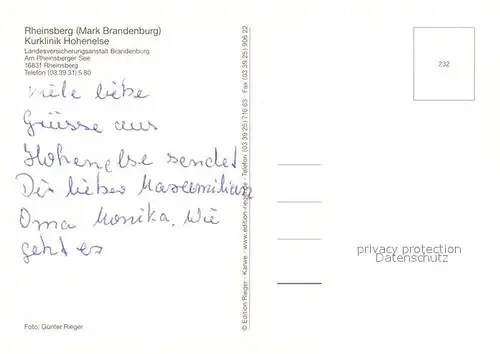 Rheinsberg (Mark Brandenburg)
Kurklinik Hohenelse
Landesversicherungsanstalt Brandenburg
Am Rheinsberger See
16831 Rheinsberg
Telefon (03 39 31) 5 80
viele liebe
Grüsse aus
Hohenelse sendet
Dir lieber Maximilian
Oma Monika. Wie
geht es
Foto: Günter Rieger
© Edition Rieger · Karwe · www.edition-rieger.de · Tel. (03 39 25) 710 63 · Fax (03 39 25) 906 22
232
privacy protection
Datenschutz